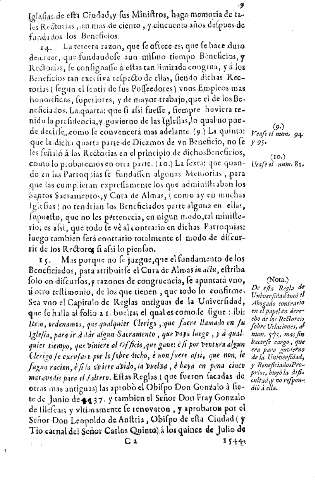 9
Iglesias de esta Ciudad, y sus Ministros, haga memoria de ta-
les Rectorias, en mas de ciento, y cincuenta años despues de
fundados los Beneficios.
14. La tercera razon, que se ofrece es, que se hace duro
de creer, que fundandose aun mismo tiempo Beneficios, y
Rectorias, se consignasse à ellas tan limitada congrua, y à los
Beneficios tan excesiva respecto de ellas, siendo dichas Rec-
torias (segun el sentir de sus Posseedores) vnos Empleos mas
honorificos, superiores, y de mayor trabajo, que el de los Be-
neficiados. La quarta: que si assi fuesse, siempre huviera te-
nido la presidencia, y govierno de las Iglesias, lo qual no pue-
de decirse, como se convencerà mas adelante (9.) La quinta:
que la dicha quarta parte de Diezmos de vn Beneficio, no se
les señalò à los Rectores en el principio de dichos Beneficios,
como lo probaremos en otra parte. (10.) La sexta: que quan-
do en las Parroquias se fundassen algunas Memorias, para
que las cumplieran expressamente los que administraban los
Santos Sacramentos, y Cura de Almas, (como ay en muchas
Iglesias) no tendrian los Beneficiados parte alguna en ellas,
supuesto, que no les pertenecia, en algun modo, tal ministe-
rio, es assi, que todo se vè al contrario en dichas Parroquias:
luego tambien serà contrario totalmente el modo de discur-
rir de los Rectores si assi lo piensan.
15. Mas porque no se juzgue, que el fundamento de los
Beneficiados, para atribuirse el Cura de Almas in actu, estriba
solo en discursos, y razones de congruencia, se apuntarà vno,
ù otro testimonio, de los que tienen, que todo lo confirme.
Sea vno el Capitulo de Reglas antiguas de la Universidad,
que se halla al folio 21. buelta; el qual es como se sigue: ibi:
Item, ordenamos, que qualquier Clerigo, que fuere llamado en su
Iglesia, para ir à dàr algun Sacramento, que vaya luego, y à qual-
quier tiempo, que viniere el Oficio, que ganes: è si por aventura algun
Clerigo se escusare por lo sobre dicho, è non fuere assi, que non le
fagan racion, è si la oviere avido, la vuelva, è haya en pena cinco
maravedis para el Cabero. Estas Reglas (que fueron sacadas de
otras mas antiguas) las aprobò el Obispo Don Gonzalo à sie-
te de Junio de 1437. y tambien el Señor Don Fray Gonzalo
de Illescas y vltimamente se renovaron, y aprobaron por el
Señor Don Leopoldo de Austria, Obispo de esta Ciudad (y
Tio carnal del Señor Carlos Quinto) à los quince de Julio de
C 2 1544.
(9.)
Vease el num. 94.
y 95.
(10.)
Vease el num. 85.
(Nota.)
De esta Regla de
Universidad usò el
Abogado contrario